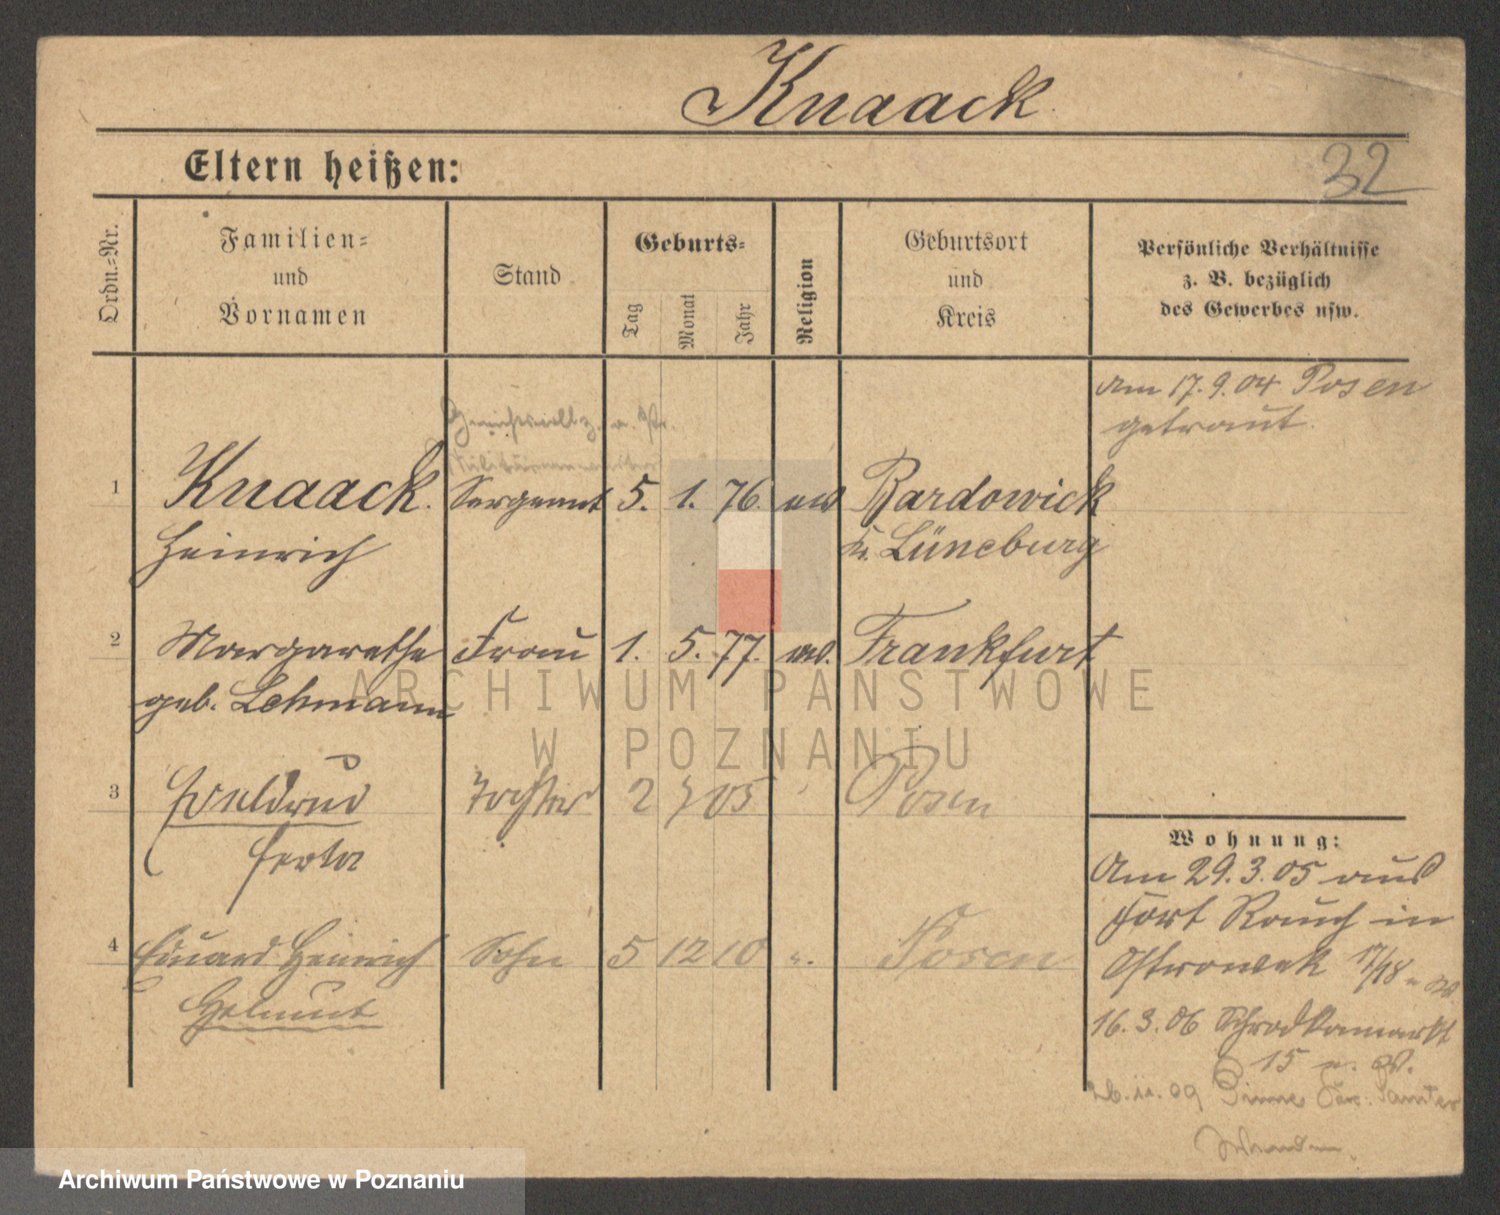 Knaack
Eltern heißen:
32
Ordn.-Nr.
Familien-
und
Vornamen
Stand
Geburts-
Tag
Monat
Jahr
Religion
Geburtsort
und
Kreis
Persönliche Verhältnisse
z. B. bezüglich
des Gewerbes usw.
Am 17.9.04 Posen
getraut.
1 Knaack. Sergeant 5. 1. 76. ev Bardowick
Heinrich Kr. Lüneburg
2 Margarethe Frau 1. 5. 77. ev. Frankfurt
geb. Lehmann
3 Tochter 2 7 05 Posen
Herta
4 Eduard Heinrich Sohn 5 12 10 ". Posen
Helmut
Wohnung:
Am 29.3.05 aus
Fort Rauch in
Ostrowek 17/18
16.3.06 Schrodkamarkt
15
26.11.09 Pinne Samter
ARCHIWUM PAŃSTWOWE
W POZNANIU
Archiwum Państwowe w Poznaniu